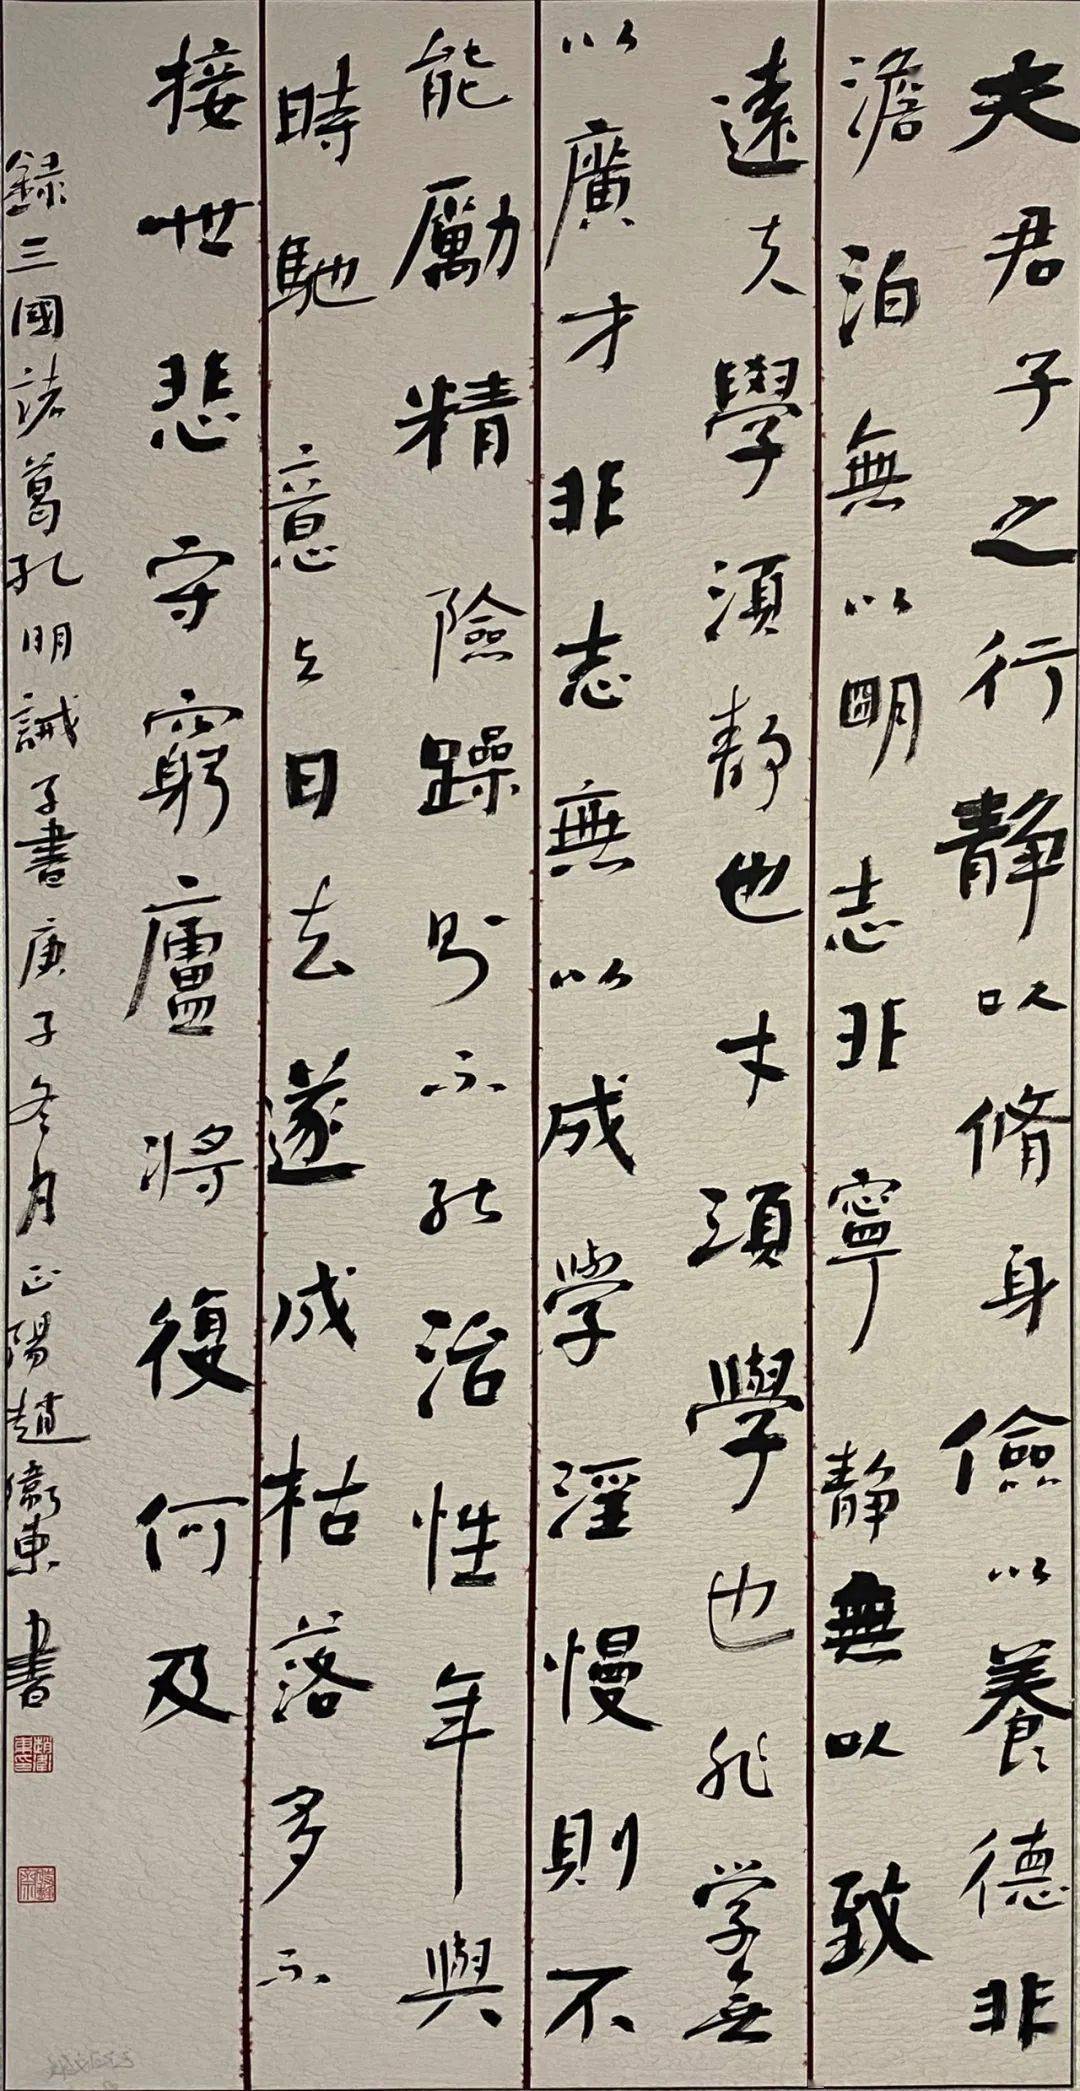 夫君子之行静以脩身儉以養德非
澹泊無以朙志非寧静無以致
遠夫學須静也才須學也非学無
以廣才非志無以成學淫慢則不
能勵精險躁則不能治性年與
時馳意与日去遂成枯落多不
接世悲守窮廬將復何及
録三國諸葛孔明誡子書庚子冬月正陽趙衛東書
趙衛東印